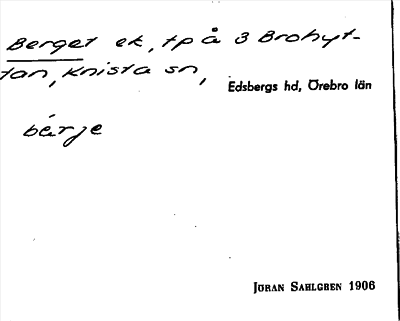 Berget ek, tp å 3 Brohyt-
tan, Knista sn,
Edsbergs hd, Örebro län
bárje
JÖRAN SAHLGREN 1906